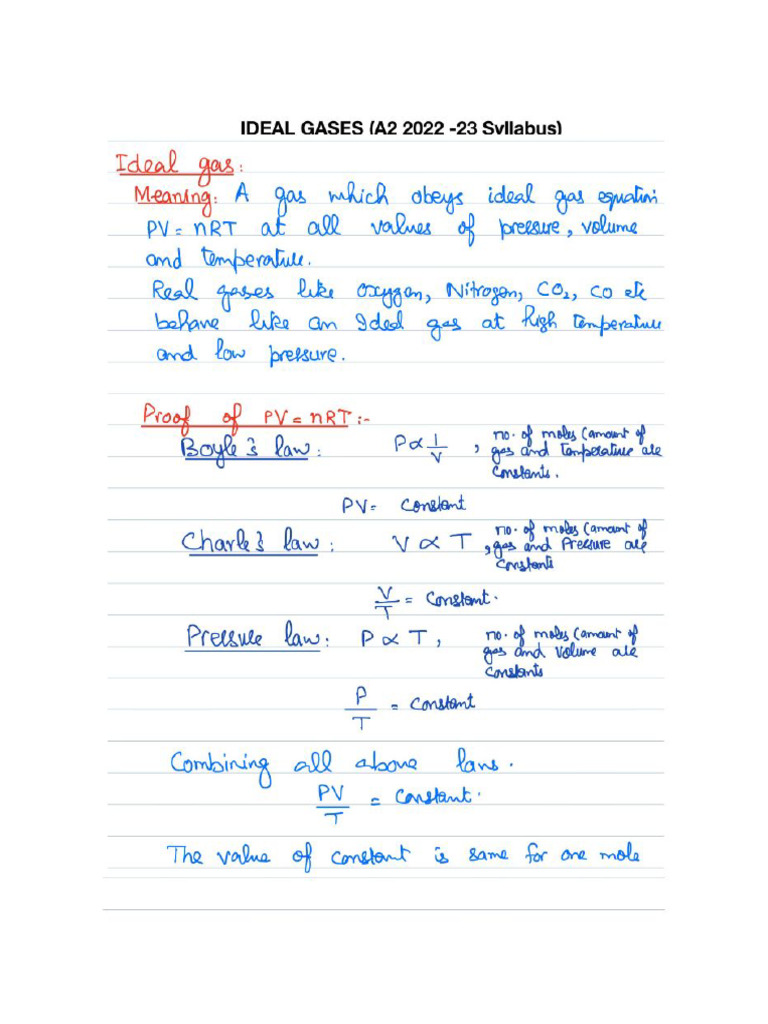 IDEAL GASES (A2 2022 -23 Syllabus)
Ideal gas:
Meaning: A gas which obeys ideal gas equation
PV = nRT at all values of pressure, volume
and temperature.
Real gases like Oxygen, Nitrogen, CO₂, CO etc
behave like an Ideal gas at high temperature
and low pressure.
Proof of PV = nRT :-
Boyle's law: P ∝ 1/V , no. of moles (amount of
gas and temperature are
constants.
PV = constant
Charle's law: V ∝ T , no. of moles (amount of
gas and Pressure are
constants
V/T = constant.
Pressure law: P ∝ T, no. of moles (amount of
gas and volume are
constants
P/T = constant
Combining all above laws.
PV/T = constant.
The value of constant is same for one mole